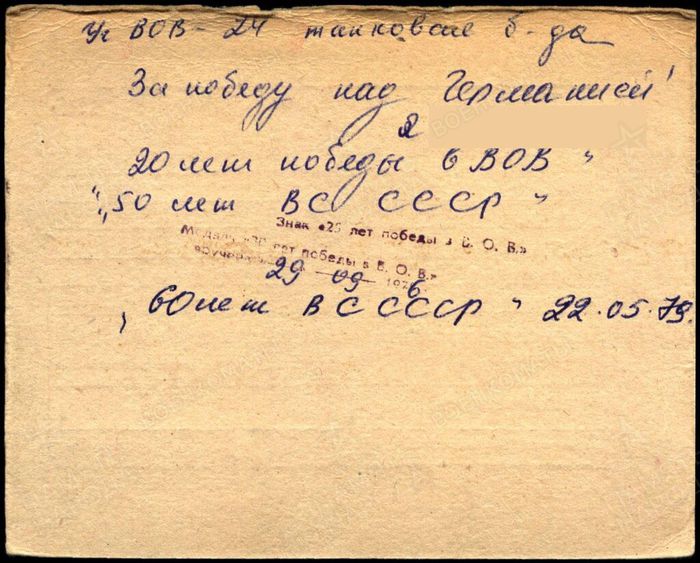 Уч ВОВ - 24 танковая б-да
За победу над Германией"
20 лет победы в ВОВ"
"50 лет ВС СССР"
Знак «25 лет победы в В. О. В.»
Медаль «30 лет победы в В. О. В.»
29 09 197
6
"60 лет ВС СССР" 22.05.79.